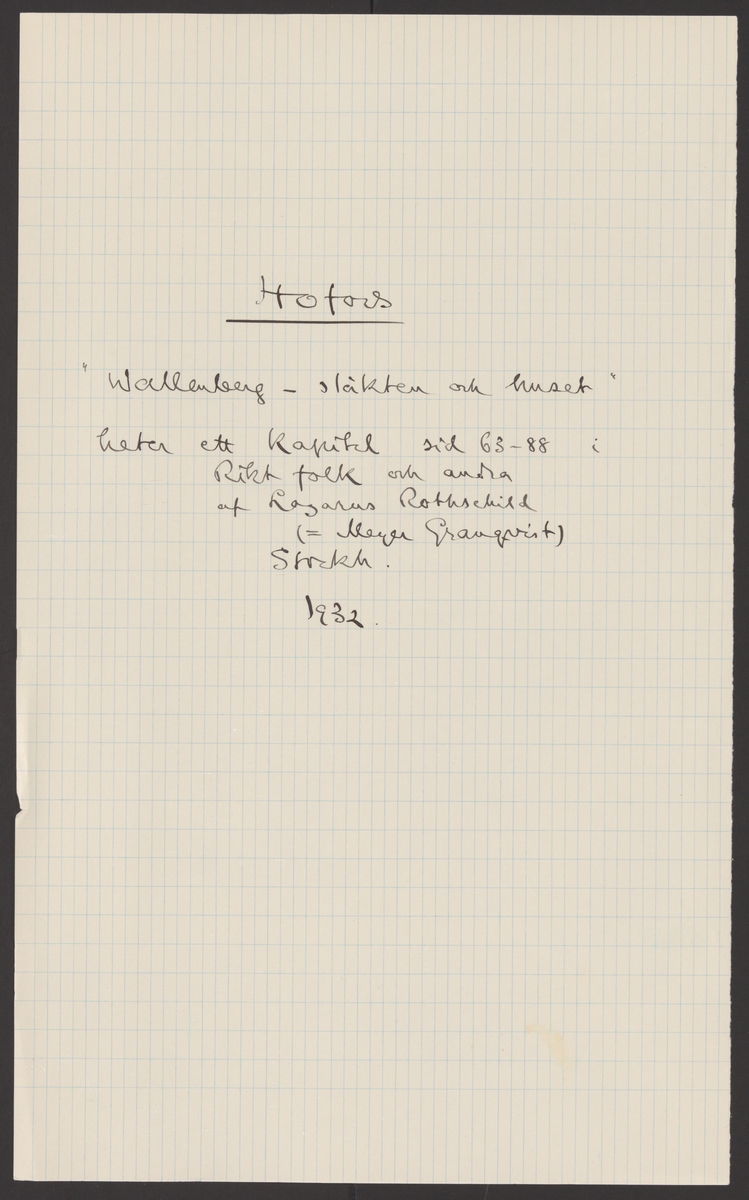 Hofors
"Wallenberg – släkten och huset"
heter ett kapitel sid 63–88 i
Rikt folk och andra
af Lazarus Rothschild
(= Meyer Granqvist)
Stockh.
1932.